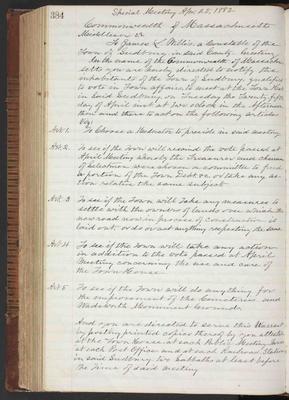 384
Special Meeting Apr. 25, 1882.
Commonwealth of Massachusetts
Middlesex SS
To James L. Willis, a Constable of the
Town of Sudbury, in said County Greeting
In the name of the Commonwealth of Massachu-
setts you are hereby directed to notify the
inhabitants of the Town of Sudbury qualified
to vote in Town affairs, to meet at the Town House
in said Sudbury on Tuesday the twenty fifth
day of April inst at two o'clock in the afternoon
then and there to act on the following articles
Viz:
Art 1. To Choose a Moderator to preside in said meeting
Art 2. To see if the Town will rescind the vote passed at
April Meeting whereby the Treasurer and
of Selectmen were chosen a committee to fund
a portion of the Town Debt &c or take any ac-
tion relative the same subject
Art. 3 To see if the Town will take any measures to
settle with the owners of lands over which the
new road now in process of construction is
laid out, or do or act anything respecting the same
Art 4. To see if the Town will take any action
in addition to the vote passed at April
Meeting concerning the use and care of
the Town House
Art 5 To see if the Town will do anything for
the improvement of the Cemeteries and
Wadsworth Monument Grounds
And you are directed to serve this Warrant
by posting printed copies thereof by you attested
at the Town House, at each Public Meeting House
at each Post Office and at each Railroad Station
in said Sudbury two Sabbaths at least before
the time of said meeting